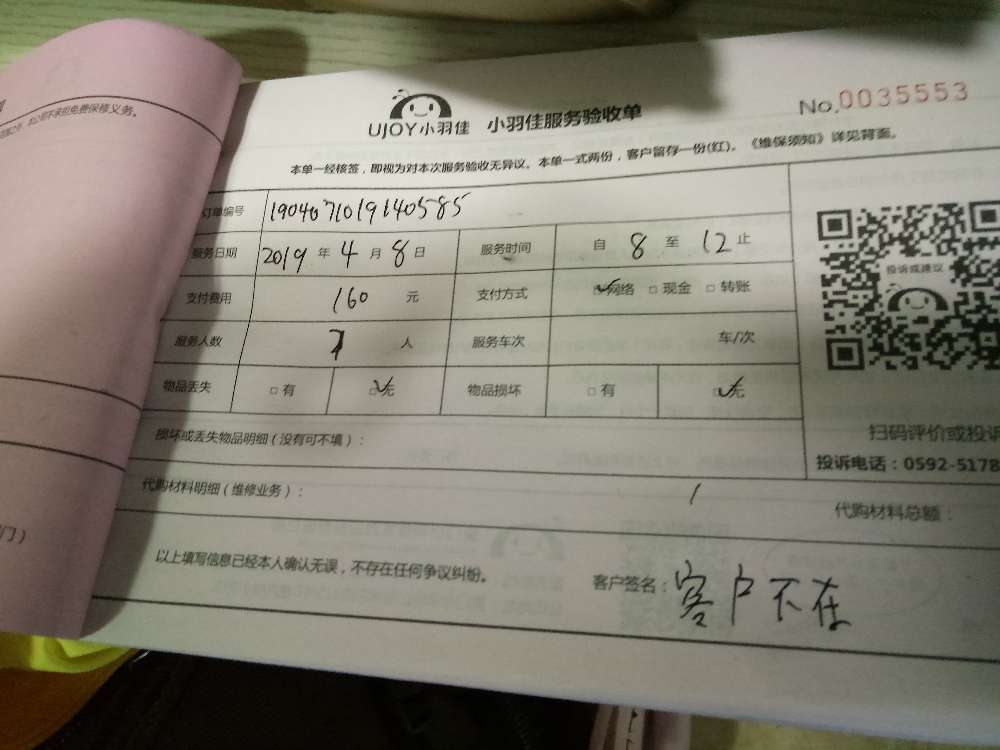 免费保修义务。
UJOY小羽佳 小羽佳服务验收单
No.0035553
本单一经核签，即视为对本次服务验收无异议。本单一式两份，客户留存一份(红)。《维保须知》详见背面。
订单编号 1904071019140585
服务日期 2019 年 4 月 8 日 服务时间 自 8 至 12 止
支付费用 160 元 支付方式 ☑网络 □ 现金 □ 转账
服务人数 1 人 服务车次 车/次
物品丢失 □ 有 ☑无 物品损坏 □ 有 ☑无
投诉或建议
扫码评价或投诉
投诉电话：0592-5178
损坏或丢失物品明细（没有可不填）：
代购材料明细（维修业务）： / 代购材料总额：
以上填写信息已经本人确认无误，不存在任何争议纠纷。
客户签名：客户不在
门）